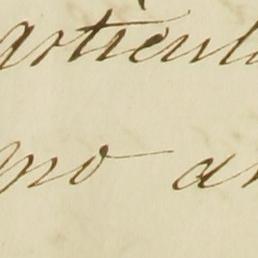 articul
no a